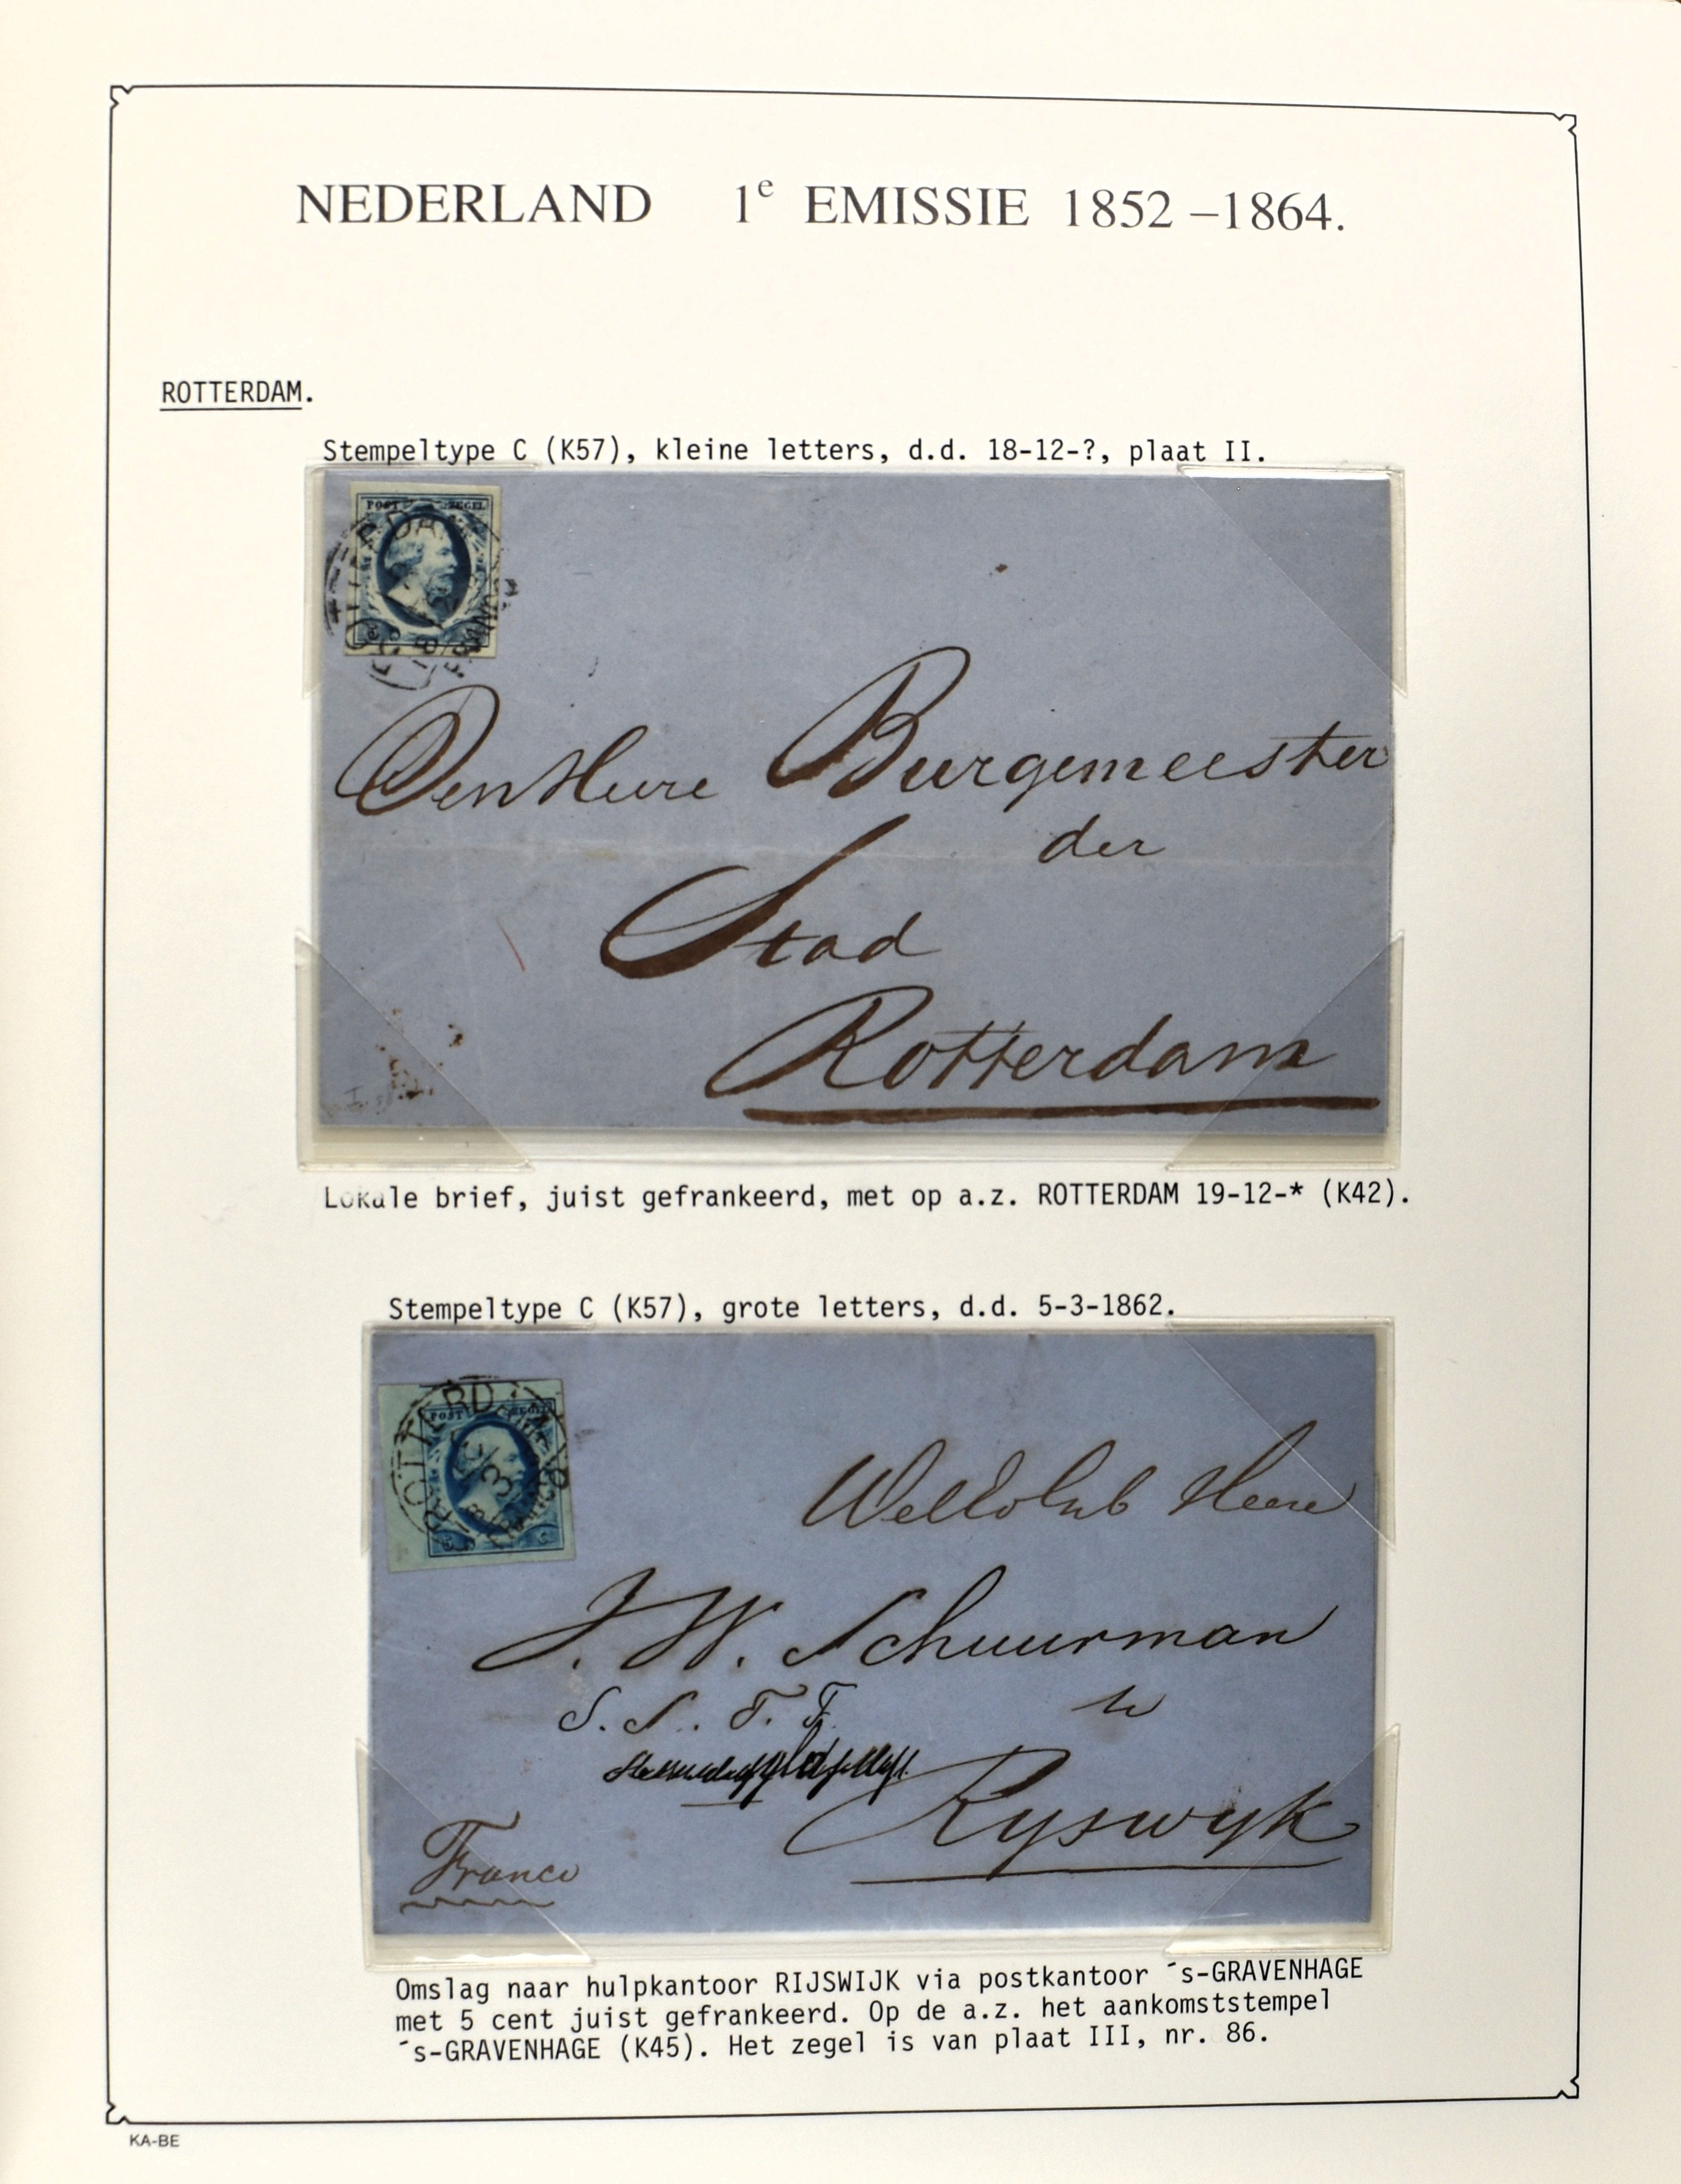 NEDERLAND 1e EMISSIE 1852 –1864.
ROTTERDAM.
Stempeltype C (K57), kleine letters, d.d. 18-12-?, plaat II.
POST ZEGEL
Den Heere Burgemeester
der
Stad
Rotterdam
Lokale brief, juist gefrankeerd, met op a.z. ROTTERDAM 19-12-* (K42).
Stempeltype C (K57), grote letters, d.d. 5-3-1862.
ROTTERDAM
POST ZEGEL
FRANCO
Heere
J. W. Schuurman
S. S. T. T.
te
Ryswyk
Franco
Omslag naar hulpkantoor RIJSWIJK via postkantoor ´s-GRAVENHAGE
met 5 cent juist gefrankeerd. Op de a.z. het aankomststempel
´s-GRAVENHAGE (K45). Het zegel is van plaat III, nr. 86.
KA-BE